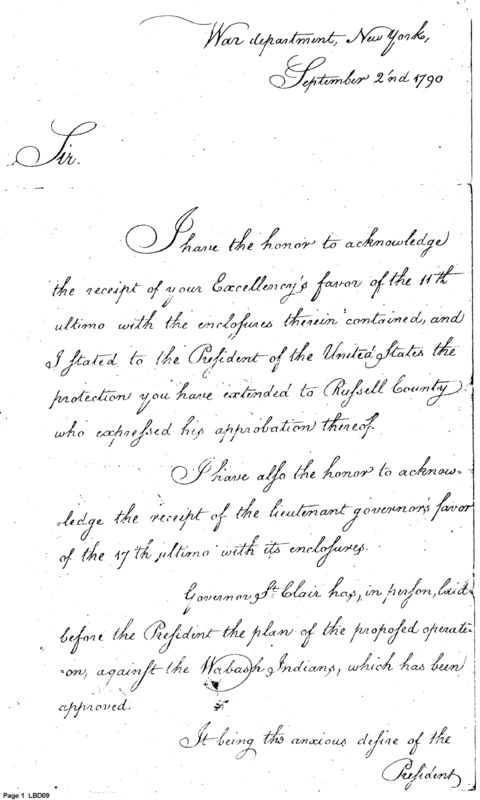 War department, New York,
September 2'nd 1790
Sir.
I have the honor to acknowledge
the receipt of your Excellency's favor of the 11th
ultimo with the enclosures therein contained, and
I stated to the President of the United States the
protection you have extended to Russell County
who expressed his approbation thereof.
I have also the honor to acknow-
-ledge the receipt of the lieutenant governor's favor
of the 17th ultimo with its enclosures.
Governor St. Clair has, in person, laid
before the President the plan of the proposed operati-
-on, against the Wabash Indians, which has been
approved.
It being the anxious desire of the
President
Page 1 LBD09